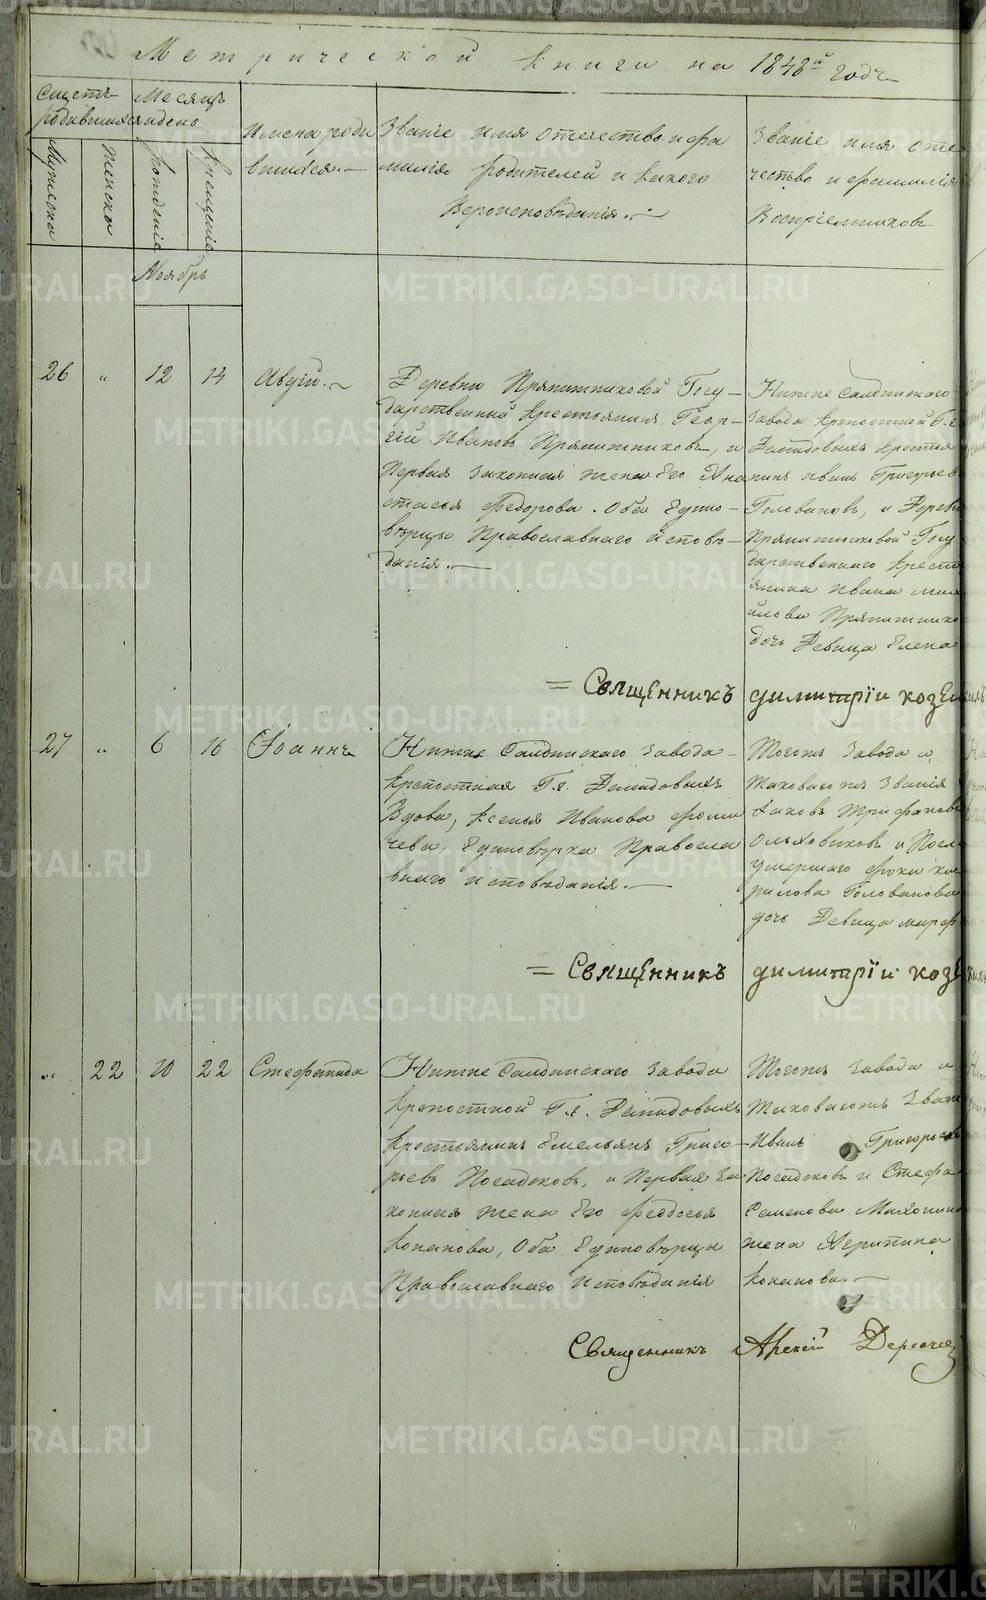 Метрической книги на 1848й годъ
Счетъ родившихся
Месяцъ и день
Мужеска
Женска
Рожденія
Крещенія
Имена роди
вшихся.
Званіе имя отечество и фа
милія родителей и какого
Вероисповѣданія.
Званіе имя оте
чество и фамилія
Воспріемниковъ
Ноябрь
26 " 12 14 Авдій.
Деревни Пряничниковой Госу-
дарственный крестьянинъ Геор-
гій Ивановъ Пряничниковъ, и
Первая законная жена Его Ана
стасья Федорова. Оба Едино-
вѣрцы Православнаго исповѣ-
данія.
Нижне Салдинскаго
завода крепостной Гг.
Демидовыхъ крестья
нинъ Иванъ Григорьев
Головановъ, и Деревн
Пряничниковой Госу
дарственнаго крестя
янина Ивана Мих
айлова Пряничнико
дочь Девица Елена
= Священникъ Димитрій Козел
27 " 6 16 Іоаннъ
Нижне Салдинскаго завода
крепостная Гг. Демидовыхъ
Вдова, Ксенья Иванова Фоми
чева, Единовѣрка Правосла
внаго исповѣданія.
Тогожъ завода и
таковагожъ званія
Іаковъ Трифанов
Ольховиковъ и
умершаго Фоки Ки
рилова Голованова
дочь Девица Марф
= Священникъ Димитрій Козе
" 22 10 22 Стефанида
Нижне Салдинскаго завода
крепостной Гг. Демидовыхъ
крестьянинъ Емельянъ Григо-
рьевъ Посадсковъ, и Первая за
конная жена Его Феодосья
Конанова, Оба Единовѣрцы
Православнаго исповѣданія
Тогожъ завода и
таковагожъ Звани
Иванъ Григорьевъ
Посадсковъ и Стефа
Семенова Махонина
жена Агрипина
Конанова.
Священникъ
METRIKI.GASO-URAL.RU